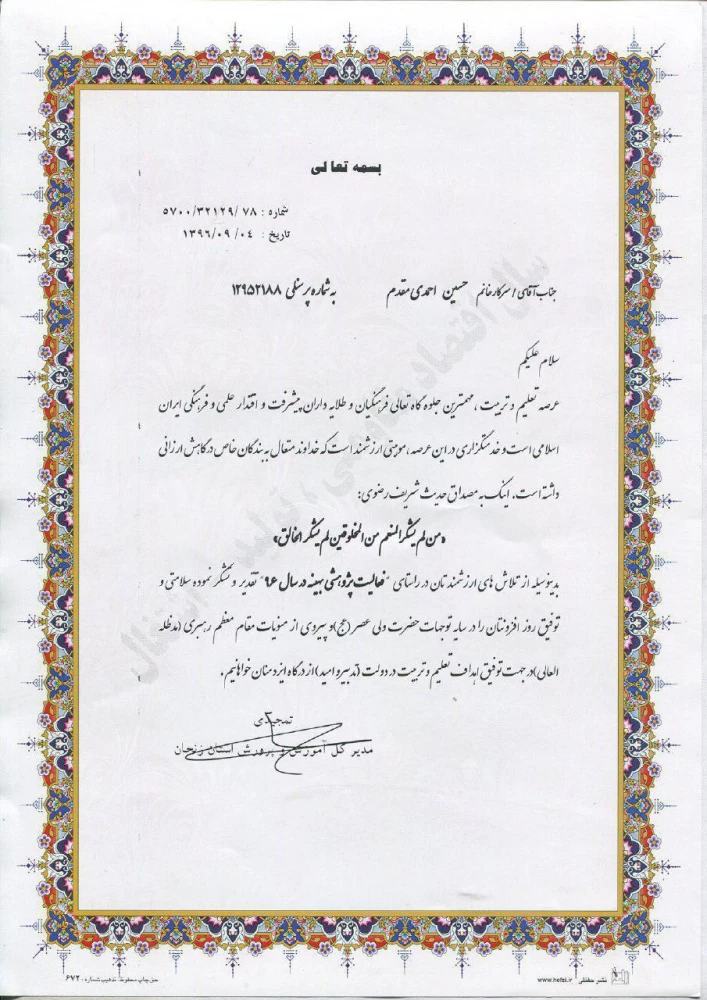 بسمه تعالی
شماره : ۵۷۰۰/۳۲۱۲۹/۷۸
تاریخ : ۱۳۹۶/۰۹/۰۴
جناب آقای / سرکار خانم حسین احمدی مقدم به شماره پرسنلی ۱۲۹۵۲۱۸۸
سلام علیکم
عرصه تعلیم و تربیت ، مهمترین جلوه گاه تعالی فرهنگیان و طلایه داران پیشرفت و اقتدار علمی و فرهنگی ایران
اسلامی است و خدمتگزاری در این عرصه ، موهبتی ارزشمند است که خداوند متعال به بندگان خاص درگاهش ارزانی
داشته است . اینک به مصداق حدیث شریف رضوی :
«من لم یشکر المنعم من المخلوقین لم یشکر الخالق»
بدینوسیله از تلاش های ارزشمندتان در راستای " فعالیت پژوهشی بهینه در سال ۹۶ " تقدیر و تشکر نموده سلامتی و
توفیق روز افزونتان را در سایه توجهات حضرت ولی عصر (عج) و پیروی از منویات مقام معظم رهبری (مدظله
العالی) در جهت توفیق اهداف تعلیم و تربیت در دولت (تدبیر و امید) از درگاه ایزد منان خواهانیم .
تمجیدی
مدیر کل آموزش و پرورش استان زنجان
سال اقتصاد مقاومتی ، تولید - اشتغال
حق چاپ محفوظ تذهیب شماره : ۶۷۲
www.hefzi.ir نشر حفظی